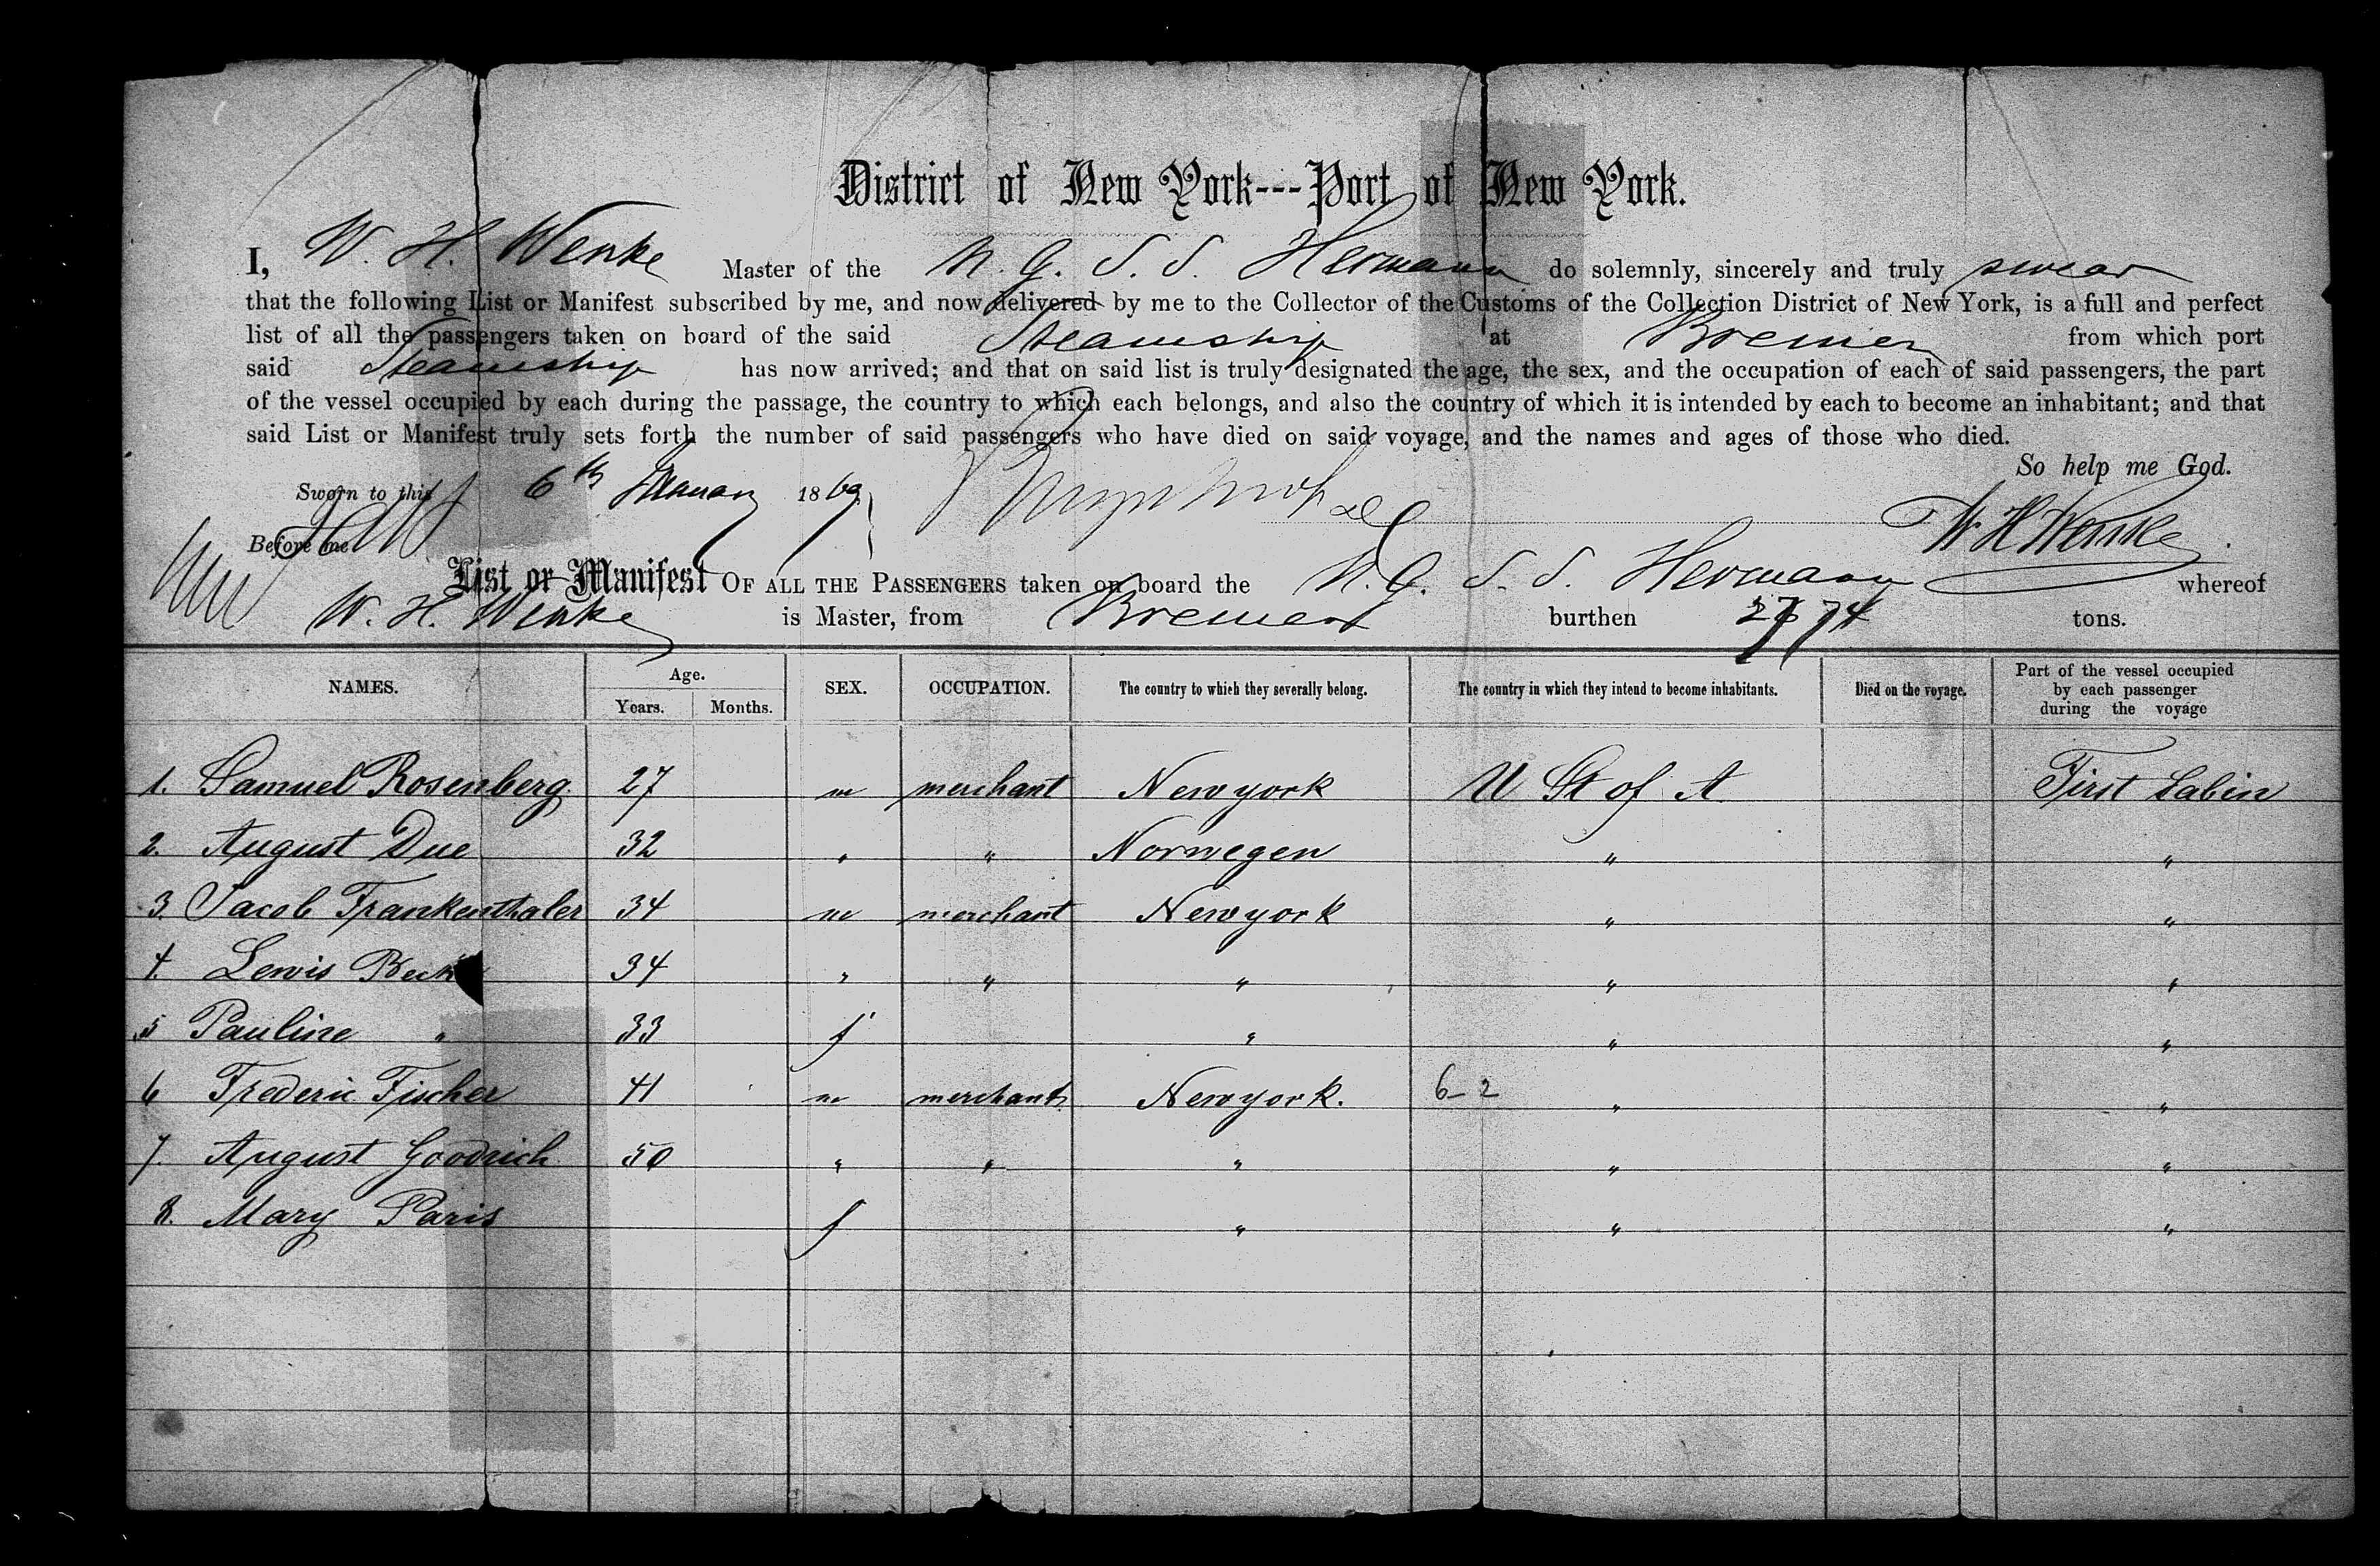 District of New York---Port of New York.
I, W. H. Wenke Master of the N. G. S. S. Hermann do solemnly, sincerely and truly swear
that the following List or Manifest subscribed by me, and now delivered by me to the Collector of the Customs of the Collection District of New York, is a full and perfect
list of all the passengers taken on board of the said Steamship at Bremen from which port
said Steamship has now arrived; and that on said list is truly designated the age, the sex, and the occupation of each of said passengers, the part
of the vessel occupied by each during the passage, the country to which each belongs, and also the country of which it is intended by each to become an inhabitant; and that
said List or Manifest truly sets forth the number of said passengers who have died on said voyage, and the names and ages of those who died.
So help me God.
Sworn to this 6th January 1869
W H Wenke
Before me
List or Manifest OF ALL THE PASSENGERS taken on board the N. G. S. S. Hermann whereof
W. H. Wenke is Master, from Bremen burthen tons.
NAMES. Age. Years. Months. SEX. OCCUPATION. The country to which they severally belong. The country in which they intend to become inhabitants. Died on the voyage. Part of the vessel occupied by each passenger during the voyage
1. Samuel Rosenberg. 27 m merchant Newyork U St of A. First Cabin
2. August Due 32 " " Norwegen " "
3. Jacob Frankenthaler 34 m merchant Newyork " "
4. Lewis Beck 34 " " " " "
5 Pauline " 33 f " " "
6 Frederic Fischer 41 m merchant Newyork. 6-2 " "
7. August Goodrich 50 " " " " "
8. Mary Paris f " " "